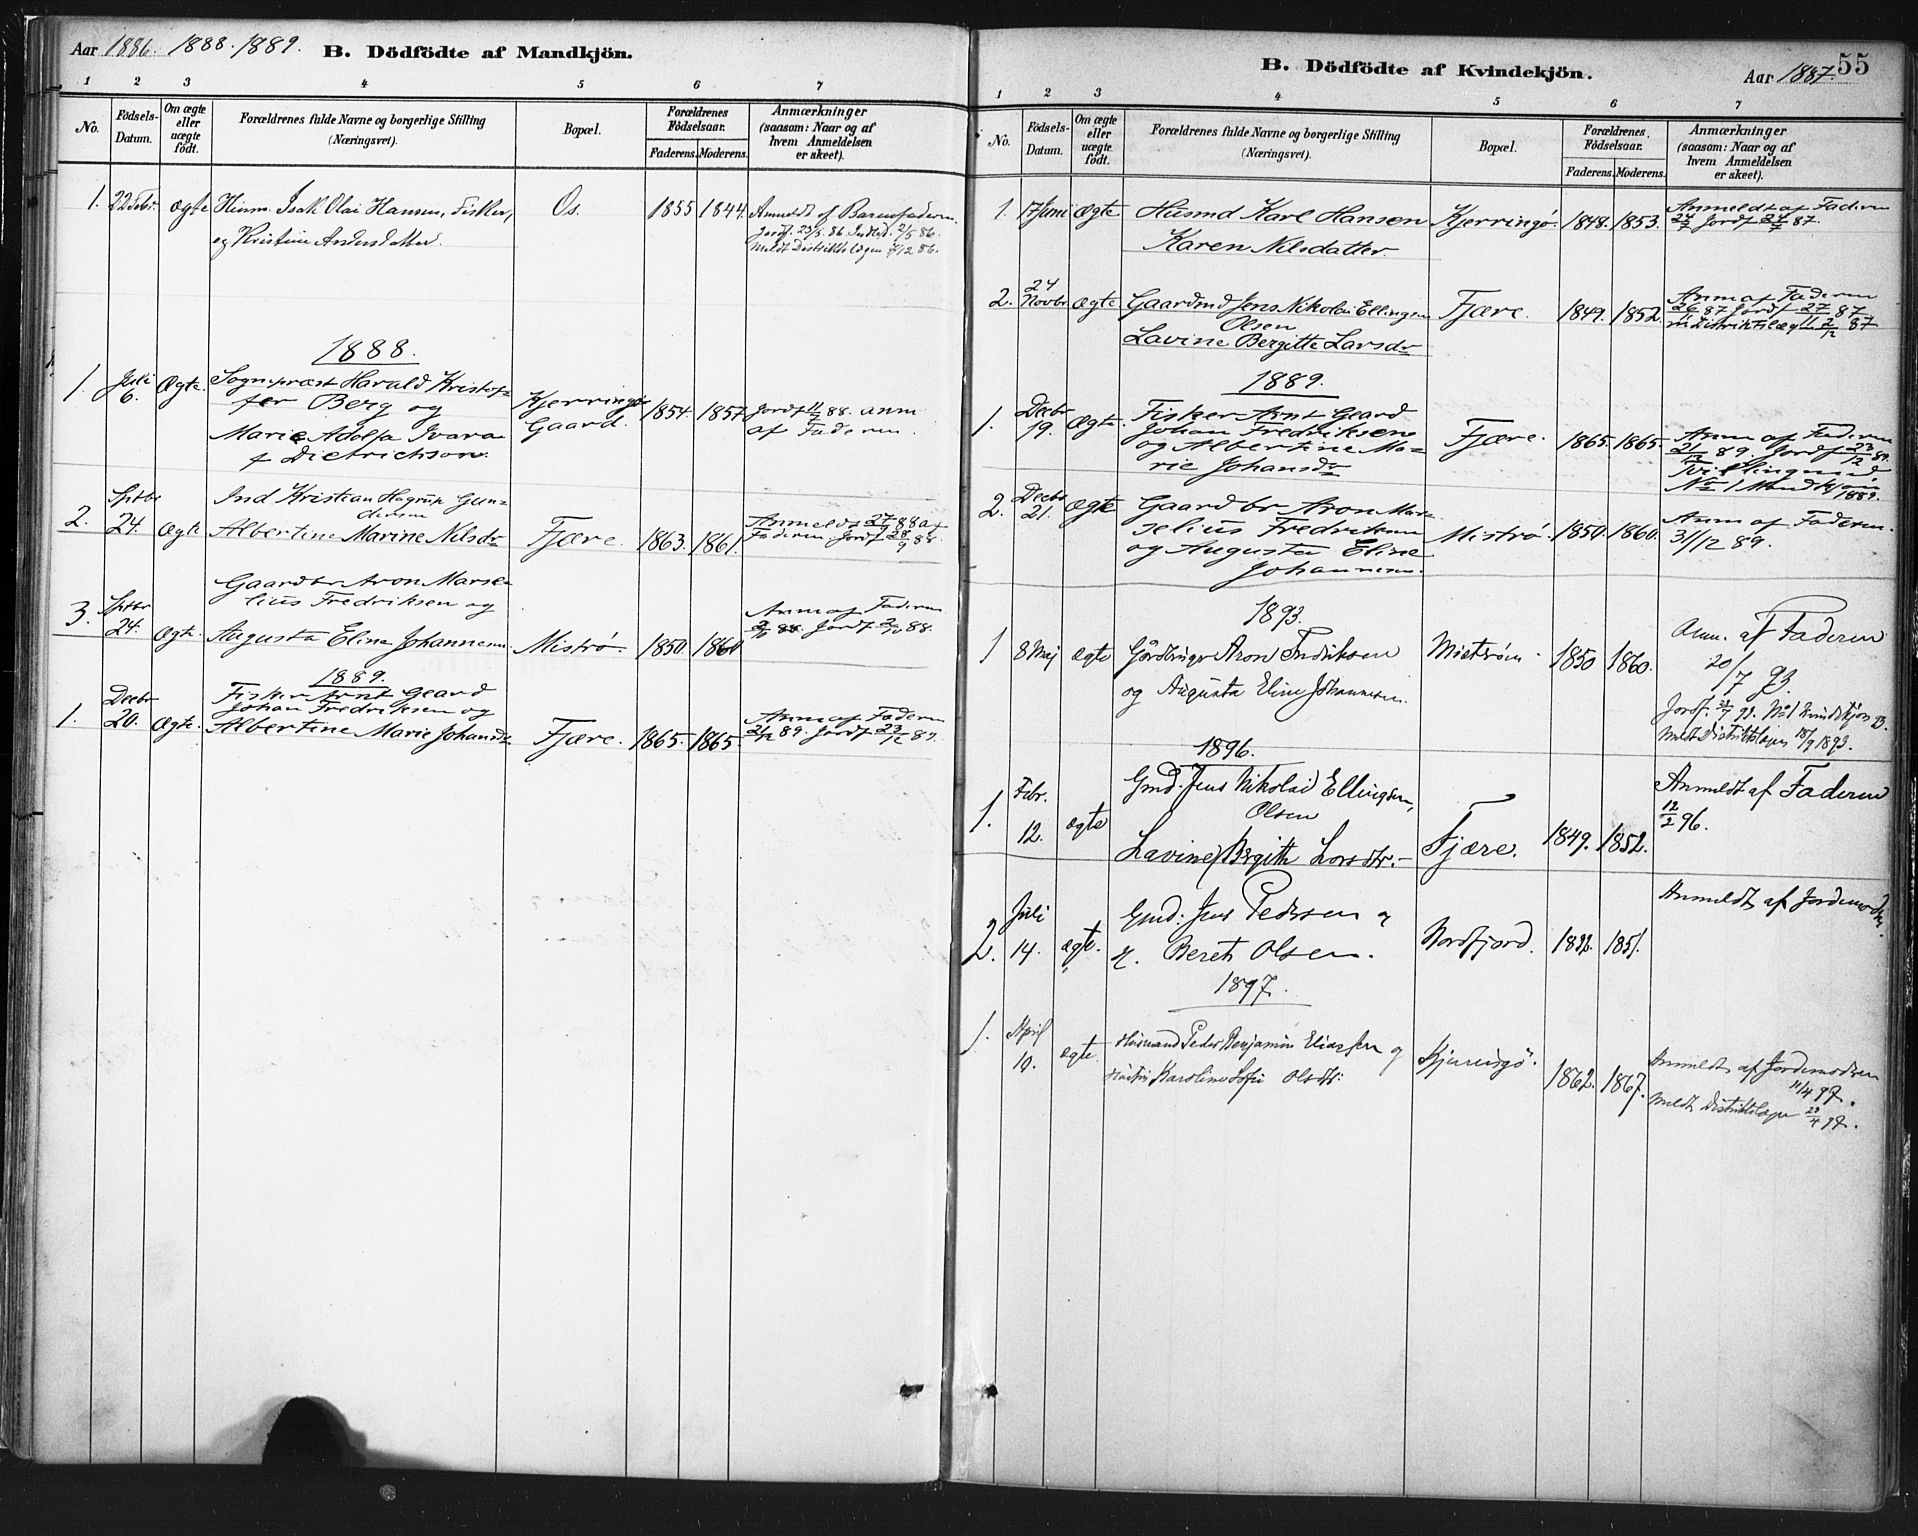 Aar 1886. 1888. 1889. B. Dödfödte af Mandkjön.
1 2 3 4 5 6 7
No. Födsels-Datum. Om ægte eller uægte födt. Forældrenes fulde Navne og borgerlige Stilling (Næringsvei). Bopæl. Forældrenes Födselsaar. Faderens. Moderens. Anmærkninger (saasom: Naar og af hvem Anmeldelsen er skeet).
1. 22 Febr. ægte Hinm. Isak Olai Hansen, Fisker, Os. 1855 1844. Anmeldt af Barnefaderen
og Kristine Andersdatter.
Meldt Distriktslægen 4/12 86.
1888.
1. Juli 6. Ægte. Sognepræst Harald Kristof-
fer Berg og Kjerringø Gaard. 1854. 1857. Jordf 11/7 88. anm
Marie Adolfa Ivara af Faderen.
f Dietrichson.
2. Sptbr 24. Ægte Ind Kristian Hagrup Gun-
dersen
Albertine Marine Nilsdr Fjære. 1863. 1861. Anmeldt 27/9 88 af
Faderen. Jordf 28/9 88.
3. Sptbr 24. Ægte Gaardbr Aron Marse-
lius Fredriksen og
Augusta Elina Johannesen Mistrø. 1850. 1860 Anm af Faderen
2/10 88. Jordf 2/10 88.
1889.
1. Decbr 20. Ægte. Fisker Arnt Geard
Johan Fredriksen og
Albertine Marie Johansdr Fjære. 1865. 1865. Anm af Faderen
21/12 89. Jordf 23/12 89.
B. Dödfödte af Kvindekjön. Aar 1887. 55
1 2 3 4 5 6 7
No. Födsels-Datum. Om ægte eller uægte födt. Forældrenes fulde Navne og borgerlige Stilling (Næringsvei). Bopæl. Forældrenes Födselsaar. Faderens. Moderens. Anmærkninger (saasom: Naar og af hvem Anmeldelsen er skeet).
1. 17 Juni Ægte Husmd Karl Hansen Kjerringø 1848. 1853. Anmeldt af Faderen
Karen Nilsdatter. 24/7 Jordf 24/7 87.
2. 24 Novbr. Ægte Gaardmd Jens Nikolai Ellingsen Fjære. 1849. 1852. Anm af Faderen
Olsen 26/11 87 Jordf 27/11 87
Lavine Bergitte Larsdr m Distriktslæg 2/12 87
1889.
1. Decbr 19. Ægte. Fisker Arnt Geard
Johan Fredriksen Fjære. 1865. 1865. Anm af Faderen
og Albertine Ma- 21/12 89. Jordf 23/12 89.
rie Johansdr Tvillingmed
No 1 Mandkjøn 1889.
2. Decbr 21. Ægte Gaardbr Aron Mar-
selius Fredriksen Mistrø. 1850. 1860. Anm af Faderen.
og Augusta Eline 31/12 89.
Johannesen.
1893.
1 8 Maj ægte Gårdbruger Aron Fredriksen Mistrøen 1850 1860. Anm. af Faderen
og Augusta Eline Johannesen. 20/7 93.
Meldt Distriktslægen 18/9 1893.
1896.
1. Febr. 12. ægte Gmd. Jens Nikolai Ellingsen, Anmeldt af Faderen
Olsen 12/2 96.
Lavine Bergith Larsdtr. Fjære. 1849. 1852.
2. Juli 14. ægte. Gmd. Jens Pedersen og Anmeldt af Jordemoderen.
H. Beret Olsen. Nordfjord. 1851.
1897.
1. April 10. ægte. Husmand Peder Benjamin Eliassen og Kjerringø. 1862. 1867. Anmeldt af Jordemoderen
Hustru Karoline Sofie Olsdtr. 11/4 97.
Meldt Distriktslægen 23/4 97.